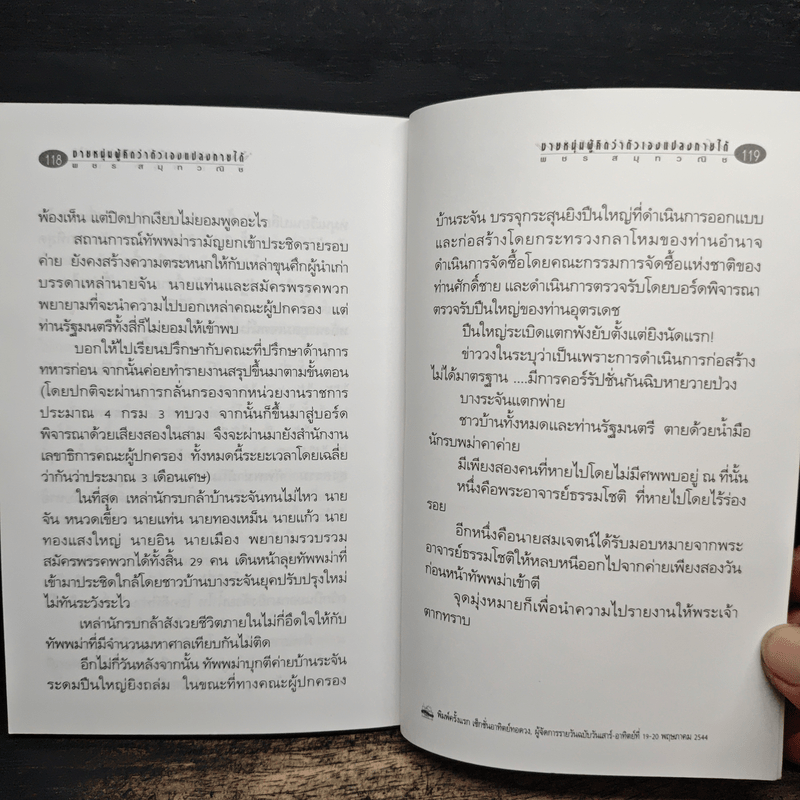 118
ชายหนุ่มผู้คิดว่าตัวเองแปลงกายได้
พชร สมุทวณิช
พ้องเห็น แต่ปิดปากเงียบไม่ยอมพูดอะไร
สถานการณ์ทัพพม่ารามัญยกเข้าประชิดรายรอบ
ค่าย ยังคงสร้างความตระหนกให้กับเหล่าขุนศึกผู้นำเก่า
บรรดาเหล่านายจัน นายแท่นและสมัครพรรคพวก
พยายามที่จะนำความไปบอกเหล่าคณะผู้ปกครอง แต่
ท่านรัฐมนตรีทั้งสี่ก็ไม่ยอมให้เข้าพบ
บอกให้ไปเรียนปรึกษากับคณะที่ปรึกษาด้านการ
ทหารก่อน จากนั้นค่อยทำรายงานสรุปขึ้นมาตามขั้นตอน
(โดยปกติจะผ่านการกลั่นกรองจากหน่วยงานราชการ
ประมาณ 4 กรม 3 ทบวง จากนั้นก็ขึ้นมาสู่บอร์ด
พิจารณาด้วยเสียงสองในสาม จึงจะผ่านมายังสำนักงาน
เลขาธิการคณะผู้ปกครอง ทั้งหมดนี้ระยะเวลาโดยเฉลี่ย
ว่ากันว่าประมาณ 3 เดือนเศษ)
ในที่สุด เหล่านักรบกล้าบ้านระจันทนไม่ไหว นาย
จัน หนวดเขี้ยว นายแท่น นายทองเหม็น นายแก้ว นาย
ทองแสงใหญ่ นายอิน นายเมือง พยายามรวบรวม
สมัครพรรคพวกได้ทั้งสิ้น 29 คน เดินหน้าลุยทัพพม่าที่
เข้ามาประชิดใกล้โดยชาวบ้านบางระจันยุคปรับปรุงใหม่
ไม่ทันระวังระไว
เหล่านักรบกล้าสังเวยชีวิตภายในไม่กี่อึดใจให้กับ
ทัพพม่าที่มีจำนวนมหาศาลเทียบกันไม่ติด
อีกไม่กี่วันหลังจากนั้น ทัพพม่าบุกตีค่ายบ้านระจัน
ระดมปืนใหญ่ยิงถล่ม ในขณะที่ทางคณะผู้ปกครอง
ชายหนุ่มผู้คิดว่าตัวเองแปลงกายได้
พชร สมุทวณิช
119
บ้านระจัน บรรจุกระสุนยิงปืนใหญ่ที่ดำเนินการออกแบบ
และก่อสร้างโดยกระทรวงกลาโหมของท่านอำนาจ
ดำเนินการจัดซื้อโดยคณะกรรมการจัดซื้อแห่งชาติของ
ท่านศักดิ์ชาย และดำเนินการตรวจรับโดยบอร์ดพิจารณา
ตรวจรับปืนใหญ่ของท่านอุตรเดช
ปืนใหญ่ระเบิดแตกพังยับตั้งแต่ยิงนัดแรก!
ข่าววงในระบุว่าเป็นเพราะการดำเนินการก่อสร้าง
ไม่ได้มาตรฐาน ....มีการคอร์รัปชั่นกันฉิบหายวายป่วง
บางระจันแตกพ่าย
ชาวบ้านทั้งหมดและท่านรัฐมนตรี ตายด้วยน้ำมือ
นักรบพม่าคาค่าย
มีเพียงสองคนที่หายไปโดยไม่มีศพพบอยู่ ณ ที่นั้น
หนึ่งคือพระอาจารย์ธรรมโชติ ที่หายไปโดยไร้ร่อง
รอย
อีกหนึ่งคือนายสมเจตน์ได้รับมอบหมายจากพระ
อาจารย์ธรรมโชติให้หลบหนีออกไปจากค่ายเพียงสองวัน
ก่อนหน้าทัพพม่าเข้าตี
จุดมุ่งหมายก็เพื่อนำความไปรายงานให้พระเจ้า
ตากทราบ
พิมพ์ครั้งแรก เซ็กชั่นอาทิตย์ทอดวง, ผู้จัดการรายวันฉบับวันเสาร์-อาทิตย์ที่ 19-20 พฤษภาคม 2544